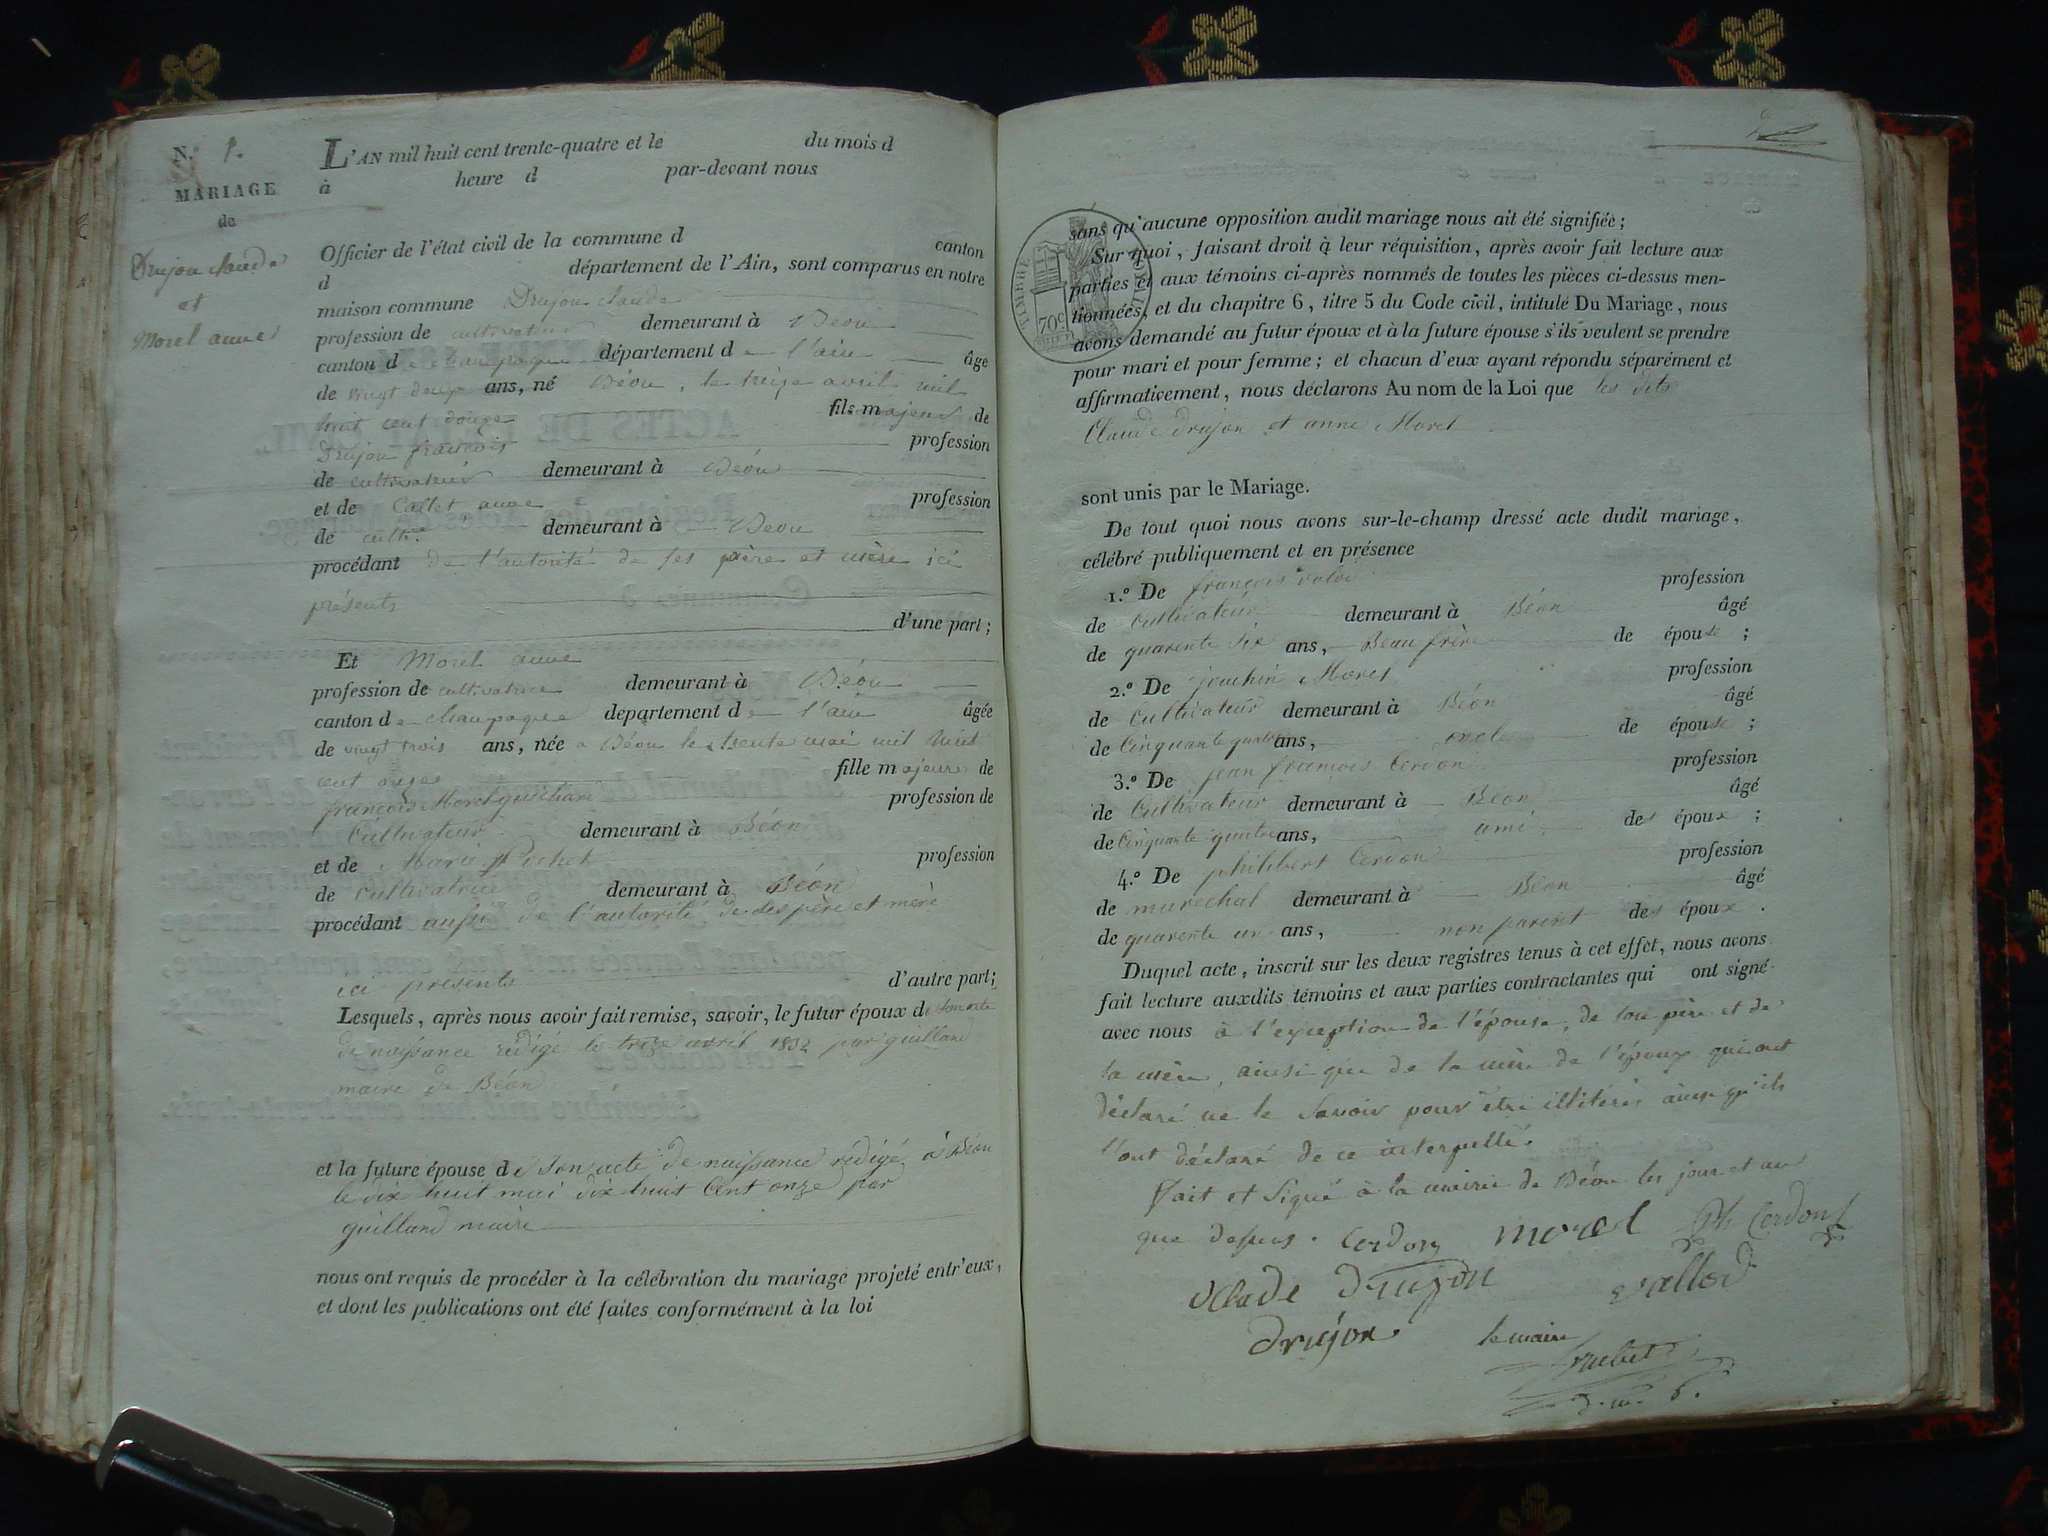 N.° 1.
MARIAGE
de
Drujon claude
et
Morel anne
L'AN mil huit cent trente-quatre et le du mois d
à heure d par-devant nous
Officier de l'état civil de la commune d canton
d département de l'Ain, sont comparus en notre
maison commune Drujon claude
profession de cultivateur demeurant à Béon
canton de champagne département de l'ain âgé
de vingt deux ans, né Béon, le treize avril mil
huit cent douze fils majeur de
Drujon françois profession
de cultivateur demeurant à Béon
et de Callet anne profession
de cult. demeurant à Béon
procédant de l'autorité de ses père et mère ici
présents
d'une part;
Et Morel anne
profession de cultivatrice demeurant à Béon
canton de champagne departement de l'ain âgée
de vingt trois ans, née a Béon le trente mai mil huit
cent onze fille majeure de
françois Morel profession de
Cultivateur demeurant à Béon
et de Marie Pochet profession
de Cultivatrice demeurant à Béon
procédant aussi de l'autorité de ses père et mère
ici presents d'autre part;
Lesquels, après nous avoir fait remise, savoir, le futur époux de son acte
de naissance rédigé le treize avril 1832 par guilland
maire de Béon
et la future épouse de son acte de naissance rédigé à Béon
le dix huit mai dix huit Cent onze par
guilland maire
nous ont requis de procéder à la célébration du mariage projeté entr'eux,
et dont les publications ont été faites conformément à la loi
TIMBRE ROYAL
70c
sans qu'aucune opposition audit mariage nous ait été signifiée;
Sur quoi, faisant droit à leur réquisition, après avoir fait lecture aux
parties et aux témoins ci-après nommés de toutes les pièces ci-dessus men-
tionnées, et du chapitre 6, titre 5 du Code civil, intitulé Du Mariage, nous
avons demandé au futur époux et à la future épouse s'ils veulent se prendre
pour mari et pour femme; et chacun d'eux ayant répondu séparément et
affirmativement, nous déclarons Au nom de la Loi que les dits
Claude drujon et anne Morel
sont unis par le Mariage.
De tout quoi nous avons sur-le-champ dressé acte dudit mariage,
célébré publiquement et en présence
1.° De françois valod profession
de Cultivateur demeurant à Béon âgé
de quarente six ans, Beau frère de épouse;
2.° De joachin Morel profession
de Cultivateur demeurant à Béon âgé
de Cinquante quatre ans, oncle de épouse;
3.° De jean françois Cerdon profession
de Cultivateur demeurant à Béon âgé
de Cinquante quatre ans, ami des époux;
4.° De philibert Cerdon profession
de marechal demeurant à Béon âgé
de quarente un ans, non parent des époux.
Duquel acte, inscrit sur les deux registres tenus à cet effet, nous avons
fait lecture auxdits témoins et aux parties contractantes qui ont signé
avec nous à l'exception de l'épouse, de son père et de
sa mère, ainsi que de la mère de l'époux qui ont
déclaré ne le Savoir pour être illitérés ainsi qu'ils
l'ont déclaré de ce interpellé.
fait et Signé à la mairie de Béon les jour et an
que dessus. Cerdon morel Ph Cerdon
Clade drujon vallod
drujon le maire